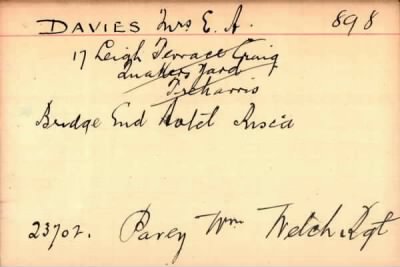 DAVIES Mrs E. A. 898
17 Leigh Terrace Craig
Quakers Yard
Treharris
Bridge End Hotel Risca
23702. Parey Wm Welch Rgt